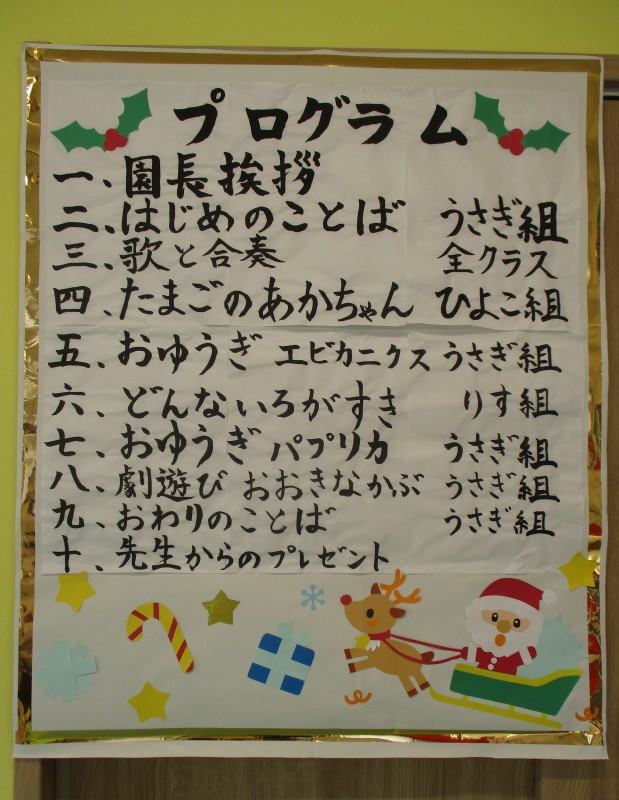 プログラム
一、園長挨拶
二、はじめのことば うさぎ組
三、歌と合奏 全クラス
四、たまごのあかちゃん ひよこ組
五、おゆうぎ エビカニクス うさぎ組
六、どんないろがすき りす組
七、おゆうぎ パプリカ うさぎ組
八、劇遊び おおきなかぶ うさぎ組
九、おわりのことば うさぎ組
十、先生からのプレゼント